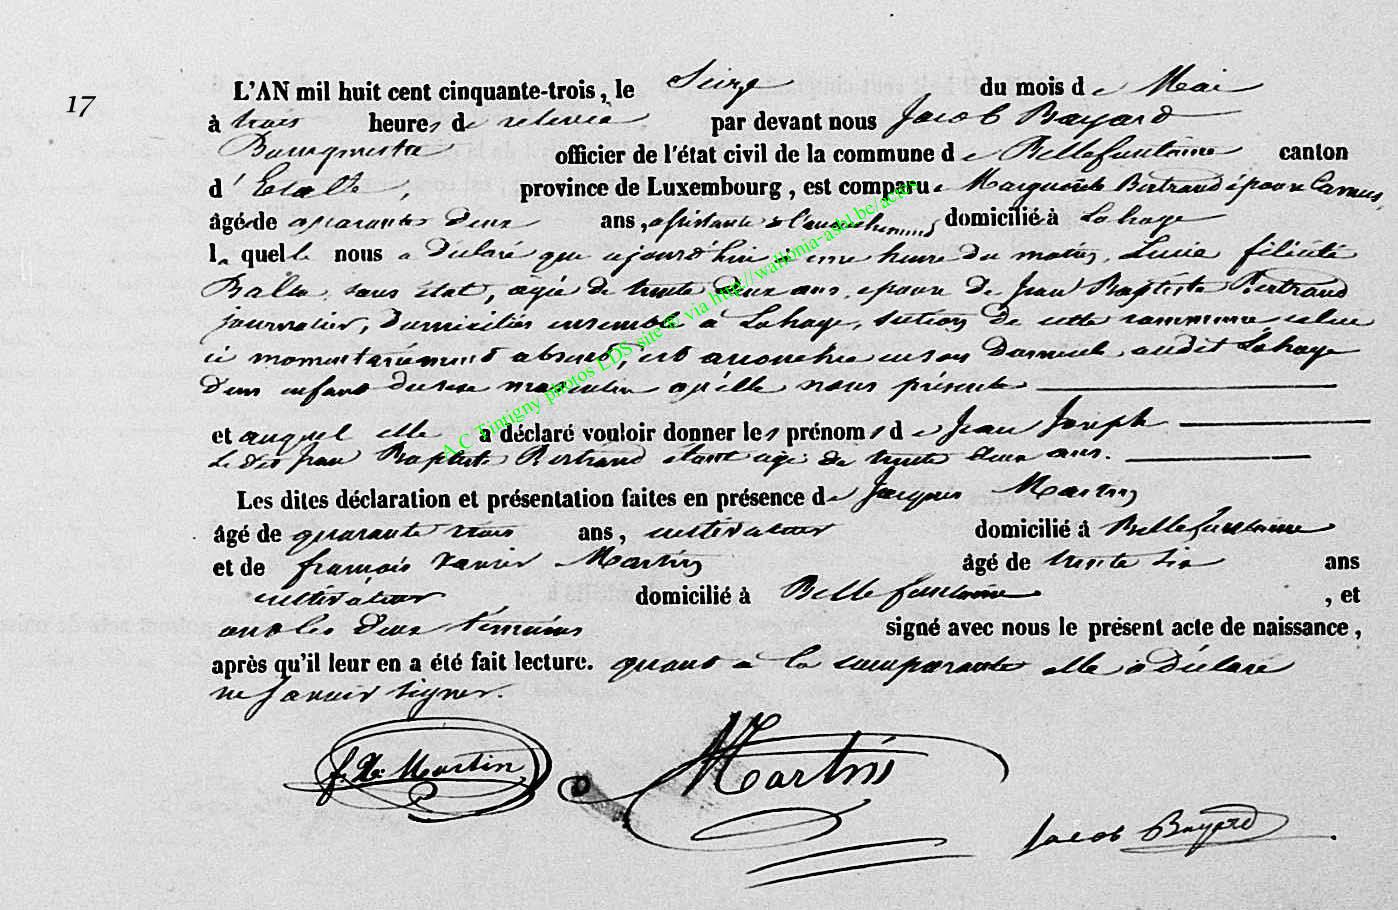 17
L'AN mil huit cent cinquante-trois, le Seize du mois de Mai
à trois heures de relevée par devant nous Jacob Bayard
Bourgmestre officier de l'état civil de la commune de Bellefontaine canton
d'Etalle, province de Luxembourg, est comparue Marguerite Bertrand épouse Camus,
âgé de quarante deux ans, assistante à l'accouchement domicilié à Lahage
laquelle nous a déclaré que aujourd'hui à une heure du matin, Lucie félicité
Balla, sans état, agée de trente deux ans, epouse de Jean Baptiste Bertrand
journalier, domiciliés ensemble à Lahage, section de cette commune celui
ci momentanément absent, est accouchée en son domicile audit Lahage
d'un enfant du sexe masculin qu'elle nous présente
et auquel elle a déclaré vouloir donner les prénoms de Jean Joseph
Le dit Jean Baptiste Bertrand étant agé de trente deux ans.
Les dites déclaration et présentation faites en présence de Jacques Martin
âgé de quarante trois ans, cultivateur domicilié à Bellefontaine
et de françois xavier Martin âgé de trente six ans
cultivateur, domicilié à Bellefontaine, et
ont les deux témoins signé avec nous le présent acte de naissance,
après qu'il leur en a été fait lecture. quant à la comparante elle a déclaré
ne savoir signer.
f. X. Martin Martin
Jacob Bayard
A.C Tintigny photos LDS site © via http://wallonia-asbl.be/actes